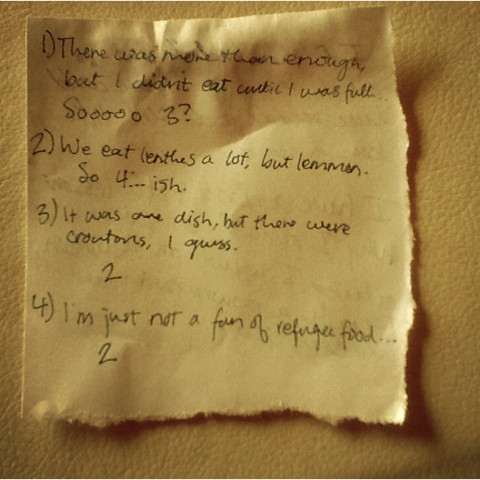 1) There was more than enough,
but I didn't eat until I was full...
Sooooo 3?
2) We eat lenthes a lot, but lemmon.
So 4... ish.
3) It was one dish, but there were
croutons, I guess.
2
4) I'm just not a fan of refugee food...
2